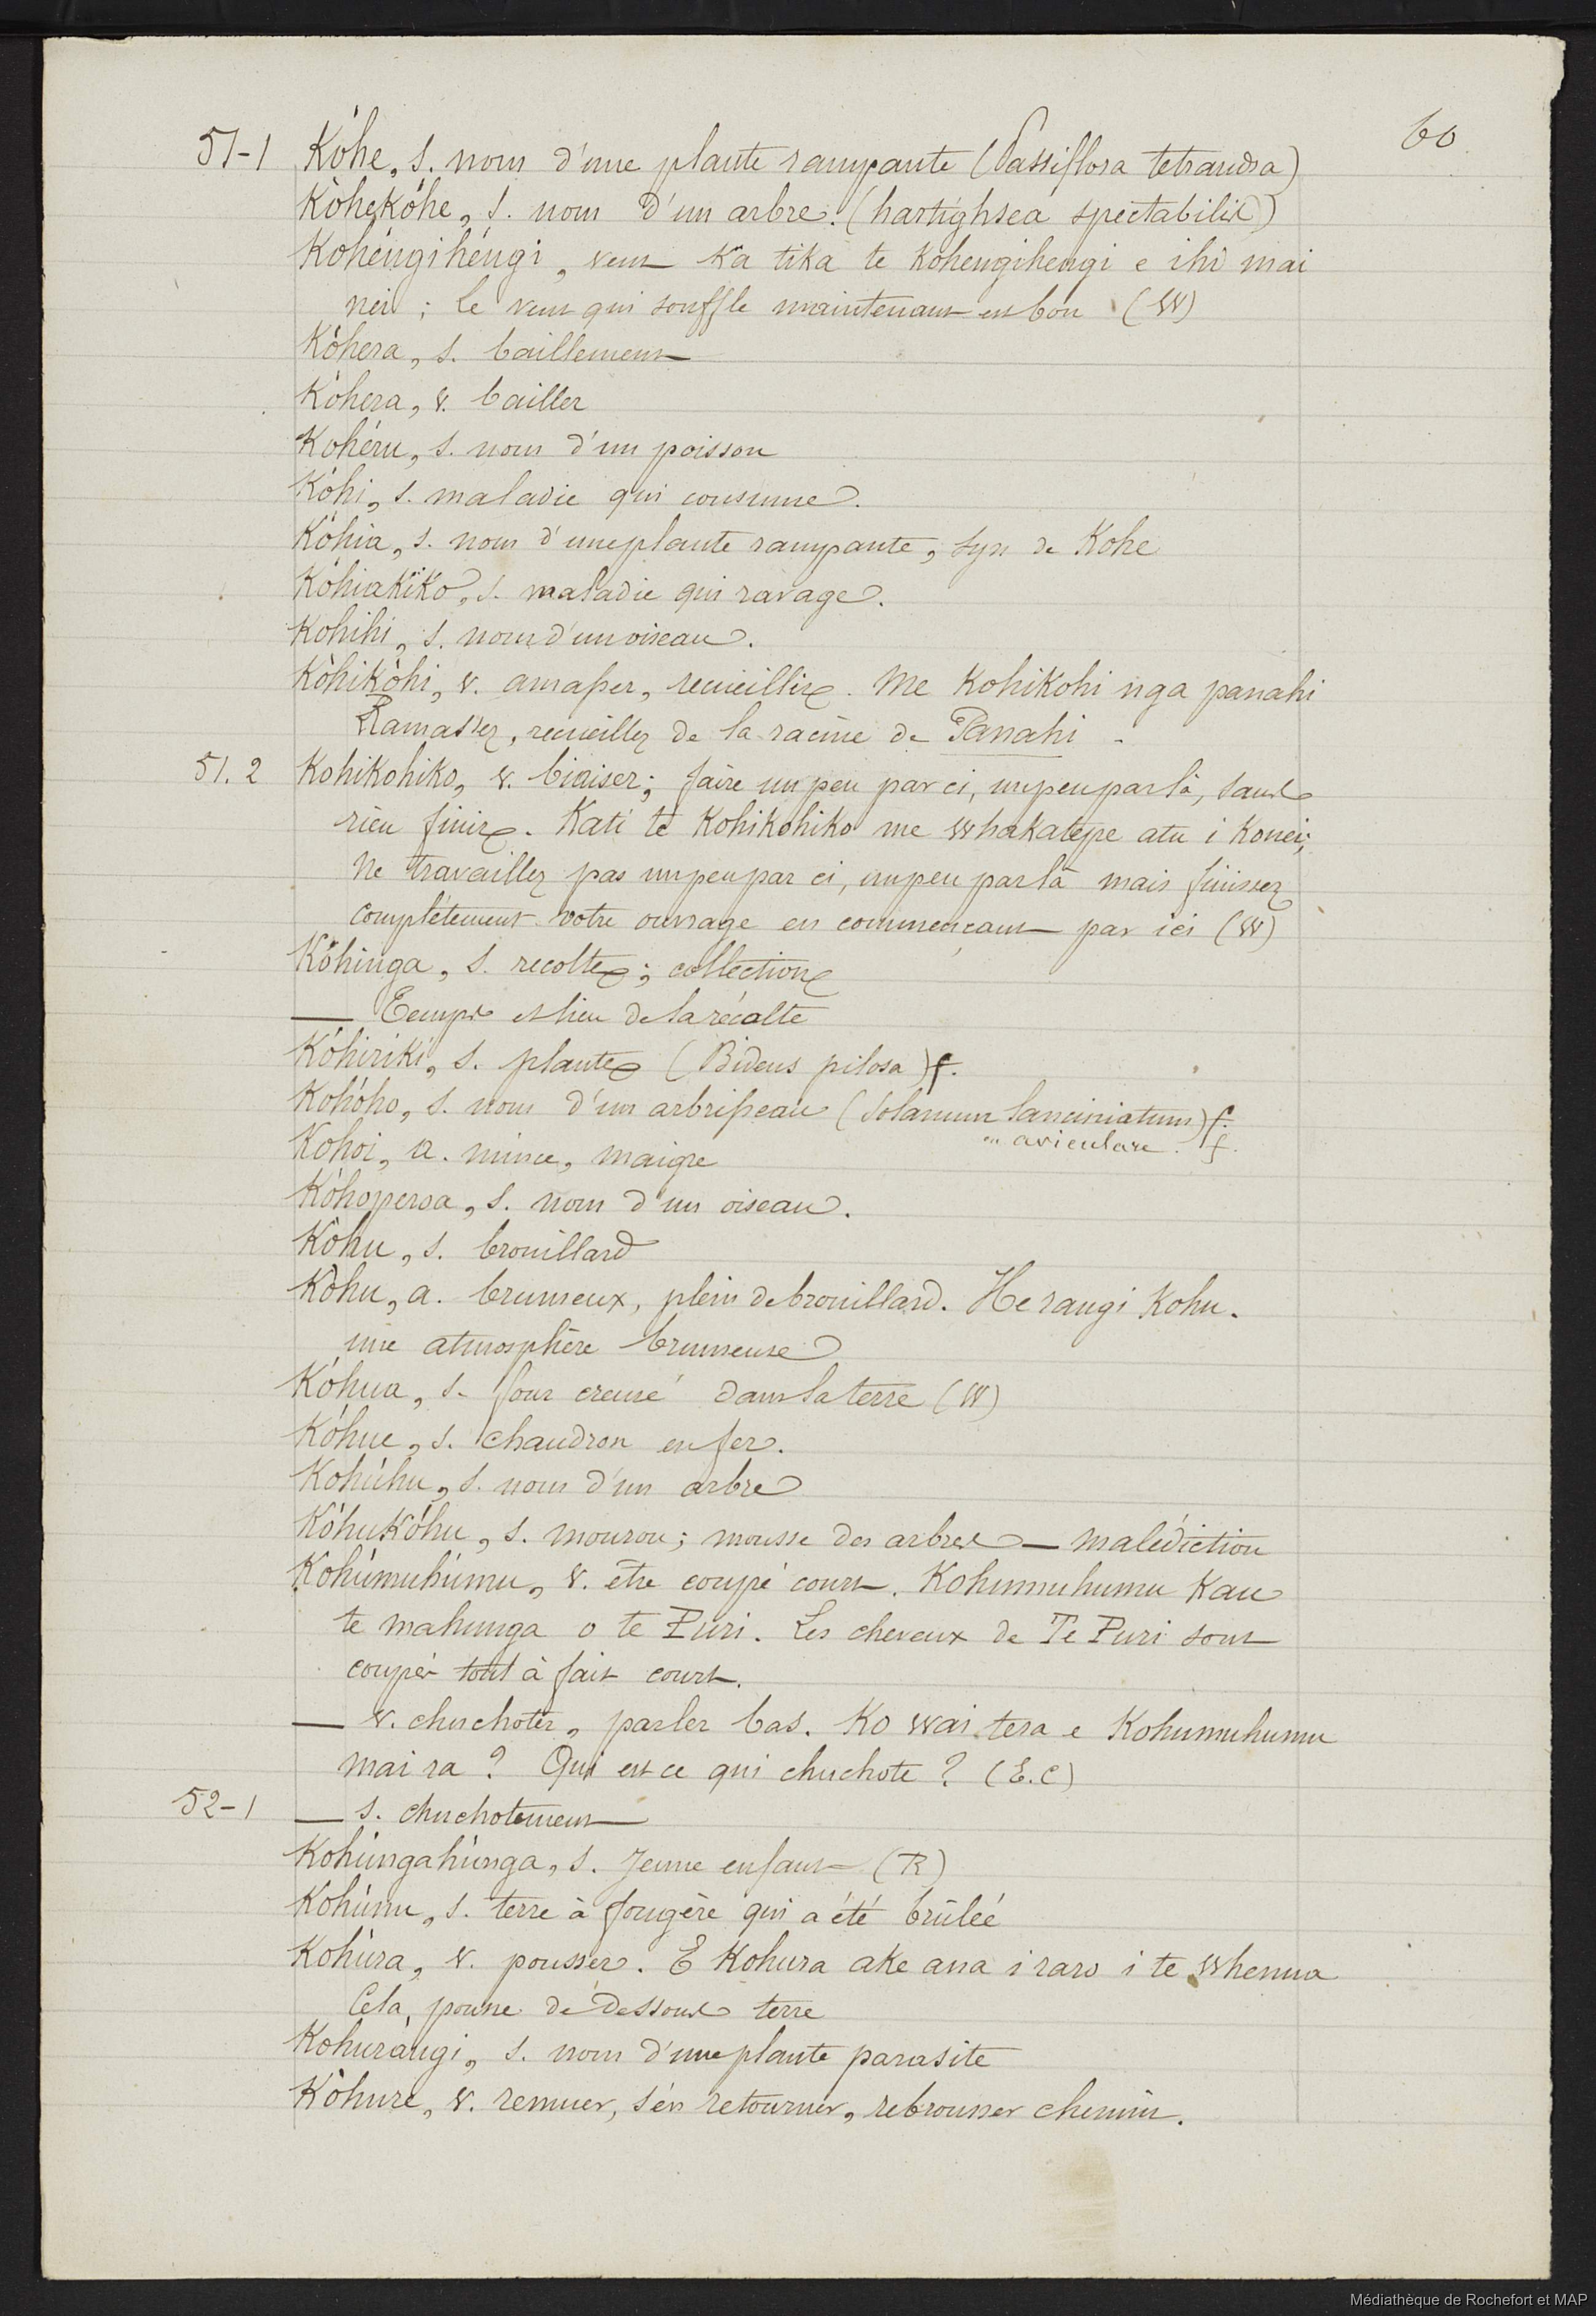 60
51-1 Kóhe, s. nom d'une plante rampante (Passiflora tetrandra)
Kòhekóhe, s. nom d'un arbre. (hartighsea spectabilis)
Kohéngihéngi, vent Ka tika te kohengihengi e ihi mai
nei ; le vent qui souffle maintenant est bon (W)
Kòhera, s. baillement
Kòhera, v. bailler
Kohéru, s. nom d'un poisson
Kóhi, s. maladie qui consume.
Kóhia, s. nom d'une plante rampante, syn de Kohe
Kóhiakiko, s. maladie qui ravage.
Kohihi, s. nom d'un oiseau.
Kòhikòhi, v. amasser, recueillir. Me Kohikohi nga panahi
Ramassez, recueillez de la racine de Panahi -
51.2 Kohikohiko, v. biaiser; faire un peu par ci, un peu par là, sans
rien finir. Kati te Kohikohiko me whakatepe atu i Konei;
Ne travaillez pas un peu par ci, un peu par là mais finissez
complètement votre ouvrage en commençant par ici (W)
Kohinga, s. recolte; collection
— Temps et lieu de la récolte
Kóhiriki, s. plante (Bidens pilosa) f.
Kohóho, s. nom d'un arbrisseau (Solanum lanciniatum) f.
" aviculare. f.
Kohoi, a. mince, maigre
Kóhoperoa, s. nom d'un oiseau.
Kòhu, s. brouillard
Kòhu, a. brumeux, plein de brouillard. He rangi Kohu.
une atmosphère brumeuse
Kóhua, s. four creusé dans la terre (W)
Kóhue, s. chaudron en fer.
Kohúhu, s. nom d'un arbre
Kóhukóhu, s. mouron; mousse des arbres — malédiction
Kohúmuhúmu, v. être coupé court. Kohumuhumu Kau
te mahunga o te Puri. Les cheveux de Te Puri sont
coupés tout à fait court.
— v. chuchoter, parler bas. Ko wai tera e Kohumuhumu
mai ra ? Qui est ce qui chuchote ? (E.C)
52-1 — s. chuchotement
Kohúngahúnga, s. Jeune enfant (R)
Kohúnu, s. terre à fougère qui a été brûlée
Kohúra, v. pousser. E Kohura ake ana i raro i te whenua
Cela pousse de dessous terre
Kohurángi, s. nom d'une plante parasite
Kòhure, v. remuer, s'en retourner, rebrousser chemin.
Médiathèque de Rochefort et MAP